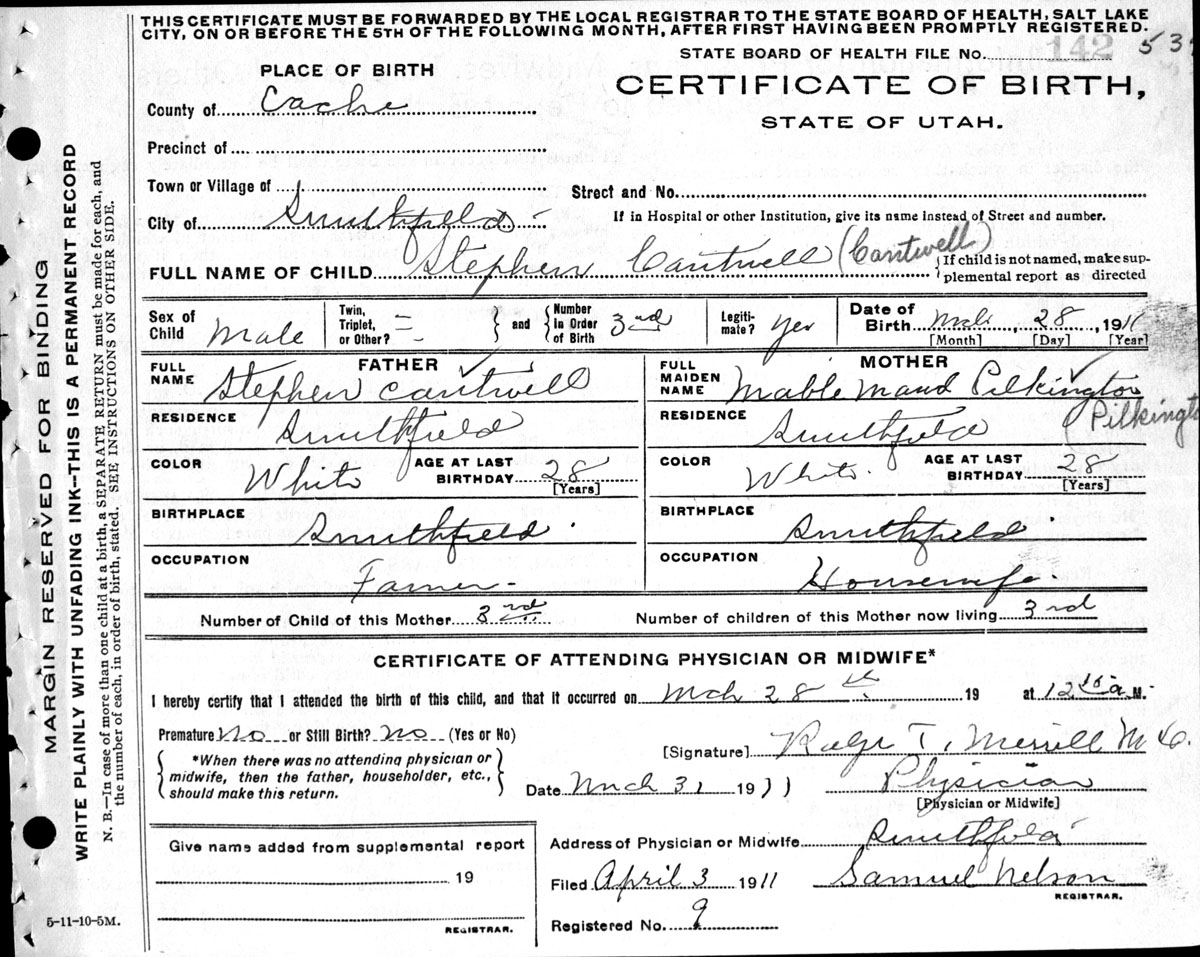 THIS CERTIFICATE MUST BE FORWARDED BY THE LOCAL REGISTRAR TO THE STATE BOARD OF HEALTH, SALT LAKE
CITY, ON OR BEFORE THE 5TH OF THE FOLLOWING MONTH, AFTER FIRST HAVING BEEN PROMPTLY REGISTERED.
STATE BOARD OF HEALTH FILE No. 142 53
PLACE OF BIRTH
CERTIFICATE OF BIRTH,
STATE OF UTAH.
County of Cache
Precinct of
Town or Village of
Street and No.
City of Smithfield
If in Hospital or other Institution, give its name instead of Street and number.
FULL NAME OF CHILD Stephen Cantwell (Cantwell)
{If child is not named, make sup-
plemental report as directed
Sex of Child Male
Twin, Triplet, or Other? =
} and {Number In Order of Birth 3rd
Legiti-mate? Yes
Date of Birth Mch, 28, 1911
[Month] [Day] [Year]
FATHER
FULL NAME Stephen Cantwell
RESIDENCE Smithfield
COLOR White AGE AT LAST BIRTHDAY 28 [Years]
BIRTHPLACE Smithfield.
OCCUPATION Famer-
MOTHER
FULL MAIDEN NAME Mable Maud Pilkington
(Pilkingt
RESIDENCE Smithfield
COLOR White. AGE AT LAST BIRTHDAY 28 [Years]
BIRTHPLACE Smithfield.
OCCUPATION Housewife.
Number of Child of this Mother 3rd
Number of children of this Mother now living 3rd
CERTIFICATE OF ATTENDING PHYSICIAN OR MIDWIFE*
I hereby certify that I attended the birth of this child, and that it occurred on Mch 28th 19 at 12 a M.
Premature No or Still Birth? No (Yes or No)
{*When there was no attending physician or
midwife, then the father, householder, etc.,
should make this return.}
[Signature] T. Merrill M.D.
Date Mch 31 1911 Physician
[Physician or Midwife]
Give name added from supplemental report
19
REGISTRAR.
Address of Physician or Midwife Smithfield
Filed April 3 1911 Samuel Nelson
REGISTRAR.
Registered No. 9
5-11-10-5M.
MARGIN RESERVED FOR BINDING
WRITE PLAINLY WITH UNFADING INK—THIS IS A PERMANENT RECORD
N. B.—In case of more than one child at a birth, a SEPARATE RETURN must be made for each, and
the number of each, in order of birth, stated. SEE INSTRUCTIONS ON OTHER SIDE.